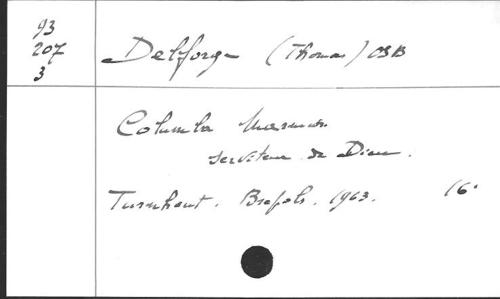 93
207
3
Delforge (Thomas) OSB
Columba Marmion
serviteur de Dieu.
Turnhout. Brepols. 1963. 16°